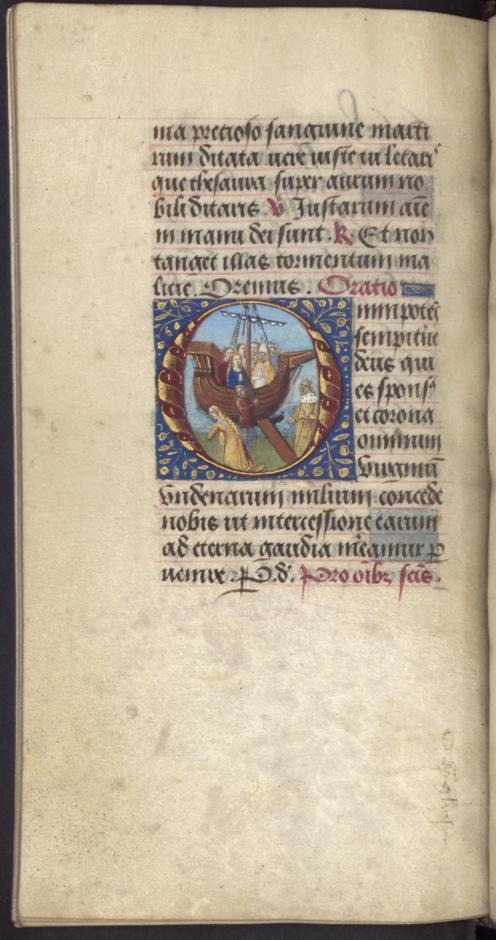 ma precioso sanguine marti
rum ditata
que thesaura super aurum no
bili ditaris ℣ Justarum aīe
in manu dei sunt. ℟. Et non
tanget illas tormentum ma
licie. Oremus. Oratio
Omnipotēs
sempitīne
deus qui
es spons9
et corona
omnium
virginū
undenarum milium concede
nobis ut intercessione earum
ad eterna gaudia mereamur p
venire. P. d. Pro oībꝫ scīs.